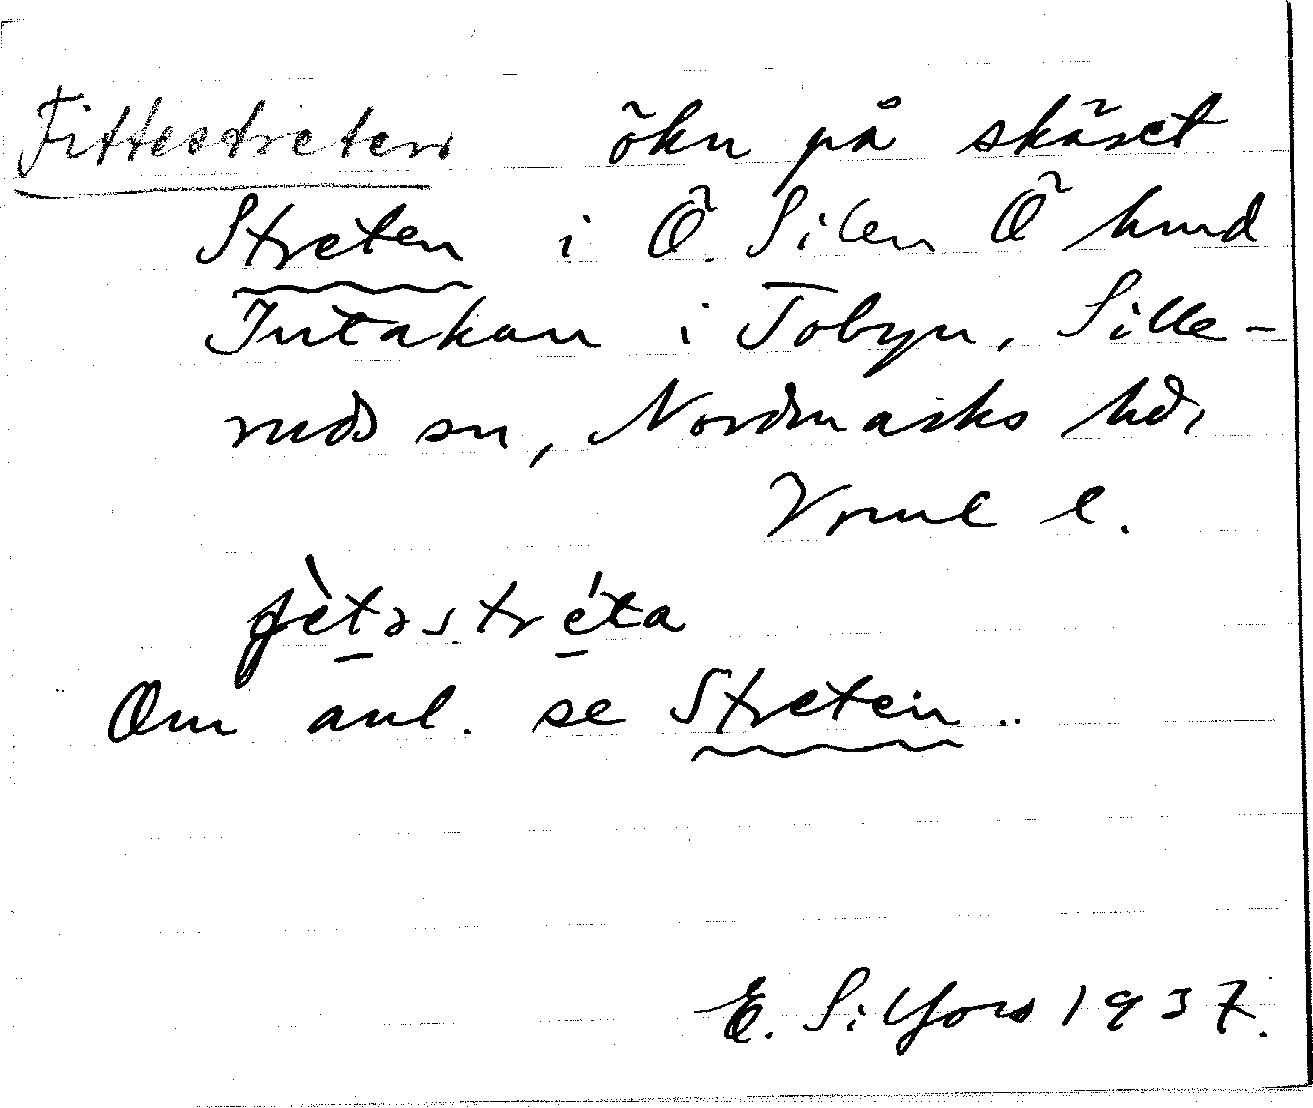 Fittestreten ökn på skäret
Streten i Ö. Silen Ö hund
Intakan i Tobyn, Sille-
ruds sn, Nordmarks hd,
Vrml l.
fètəstréta
Om anl. se Streten..
E. Silfors 1937.